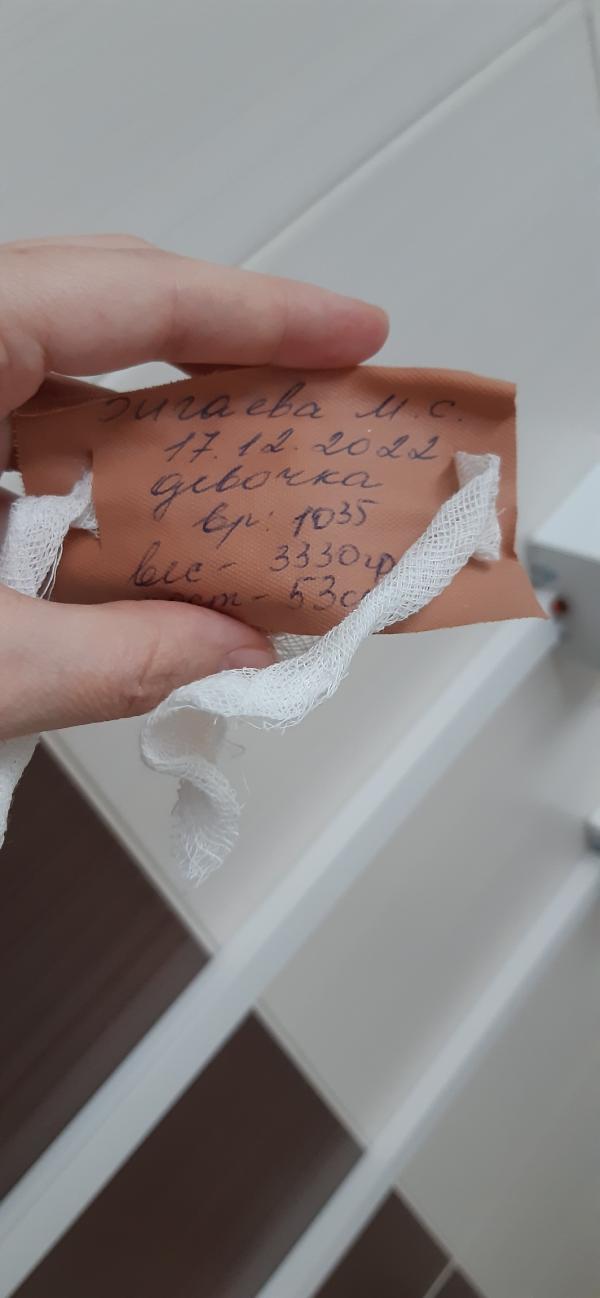 Зигаева М.С.
17.12.2022
девочка
вр: 10³⁵
вес - 3330гр
рост - 53с